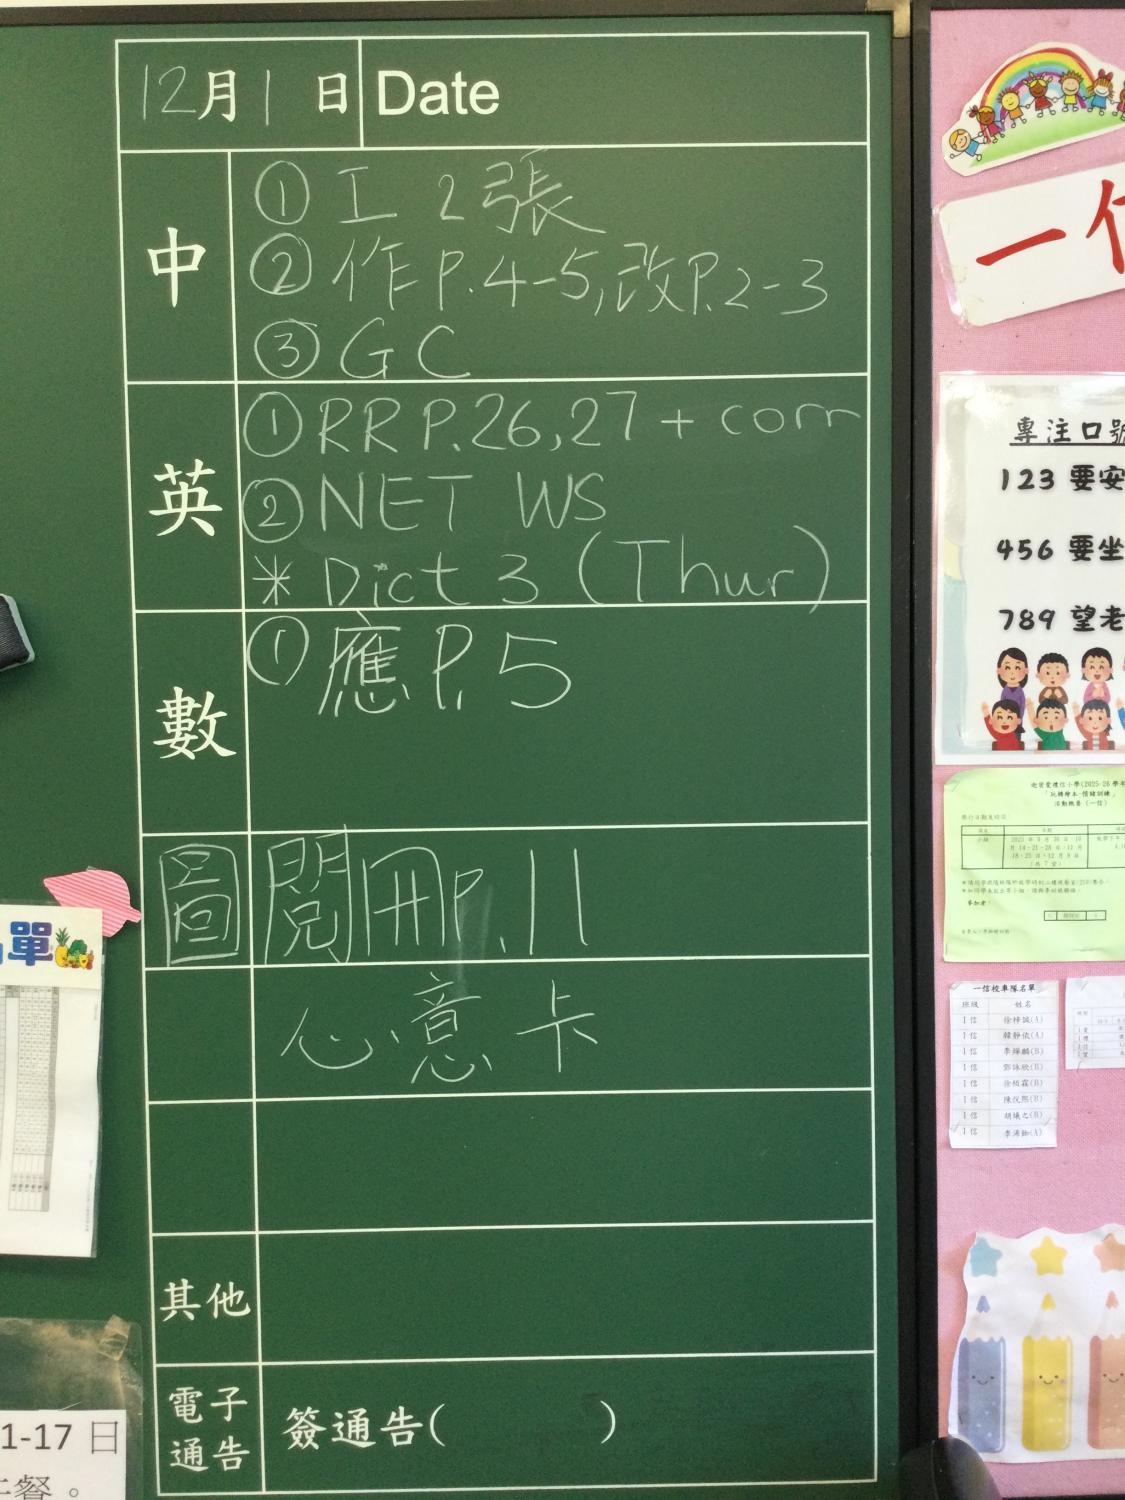 12月1日 Date
中
① 工 2張
② 作P.4-5,改P.2-3
③ GC
英
① RR P.26,27 + corr
② NET WS
* Dict 3 (Thur)
數
① 應 P.5
圖 閱冊P.11
心意卡
其他
電子
通告
簽通告( )
單
1-17 日
餐。
一信
專注口號
123 要安
456 要坐
789 望老
(2025-26 學年
活動概要 (一信)
一信校車隊名單
班級 姓名
1信 徐梓誠(A)
1信 韓靜依(A)
1信 李煇麟(B)
1信 鄧詠欣(B)
1信 徐栢霖(B)
1信 陳倪熙(B)
1信 胡曦之(B)